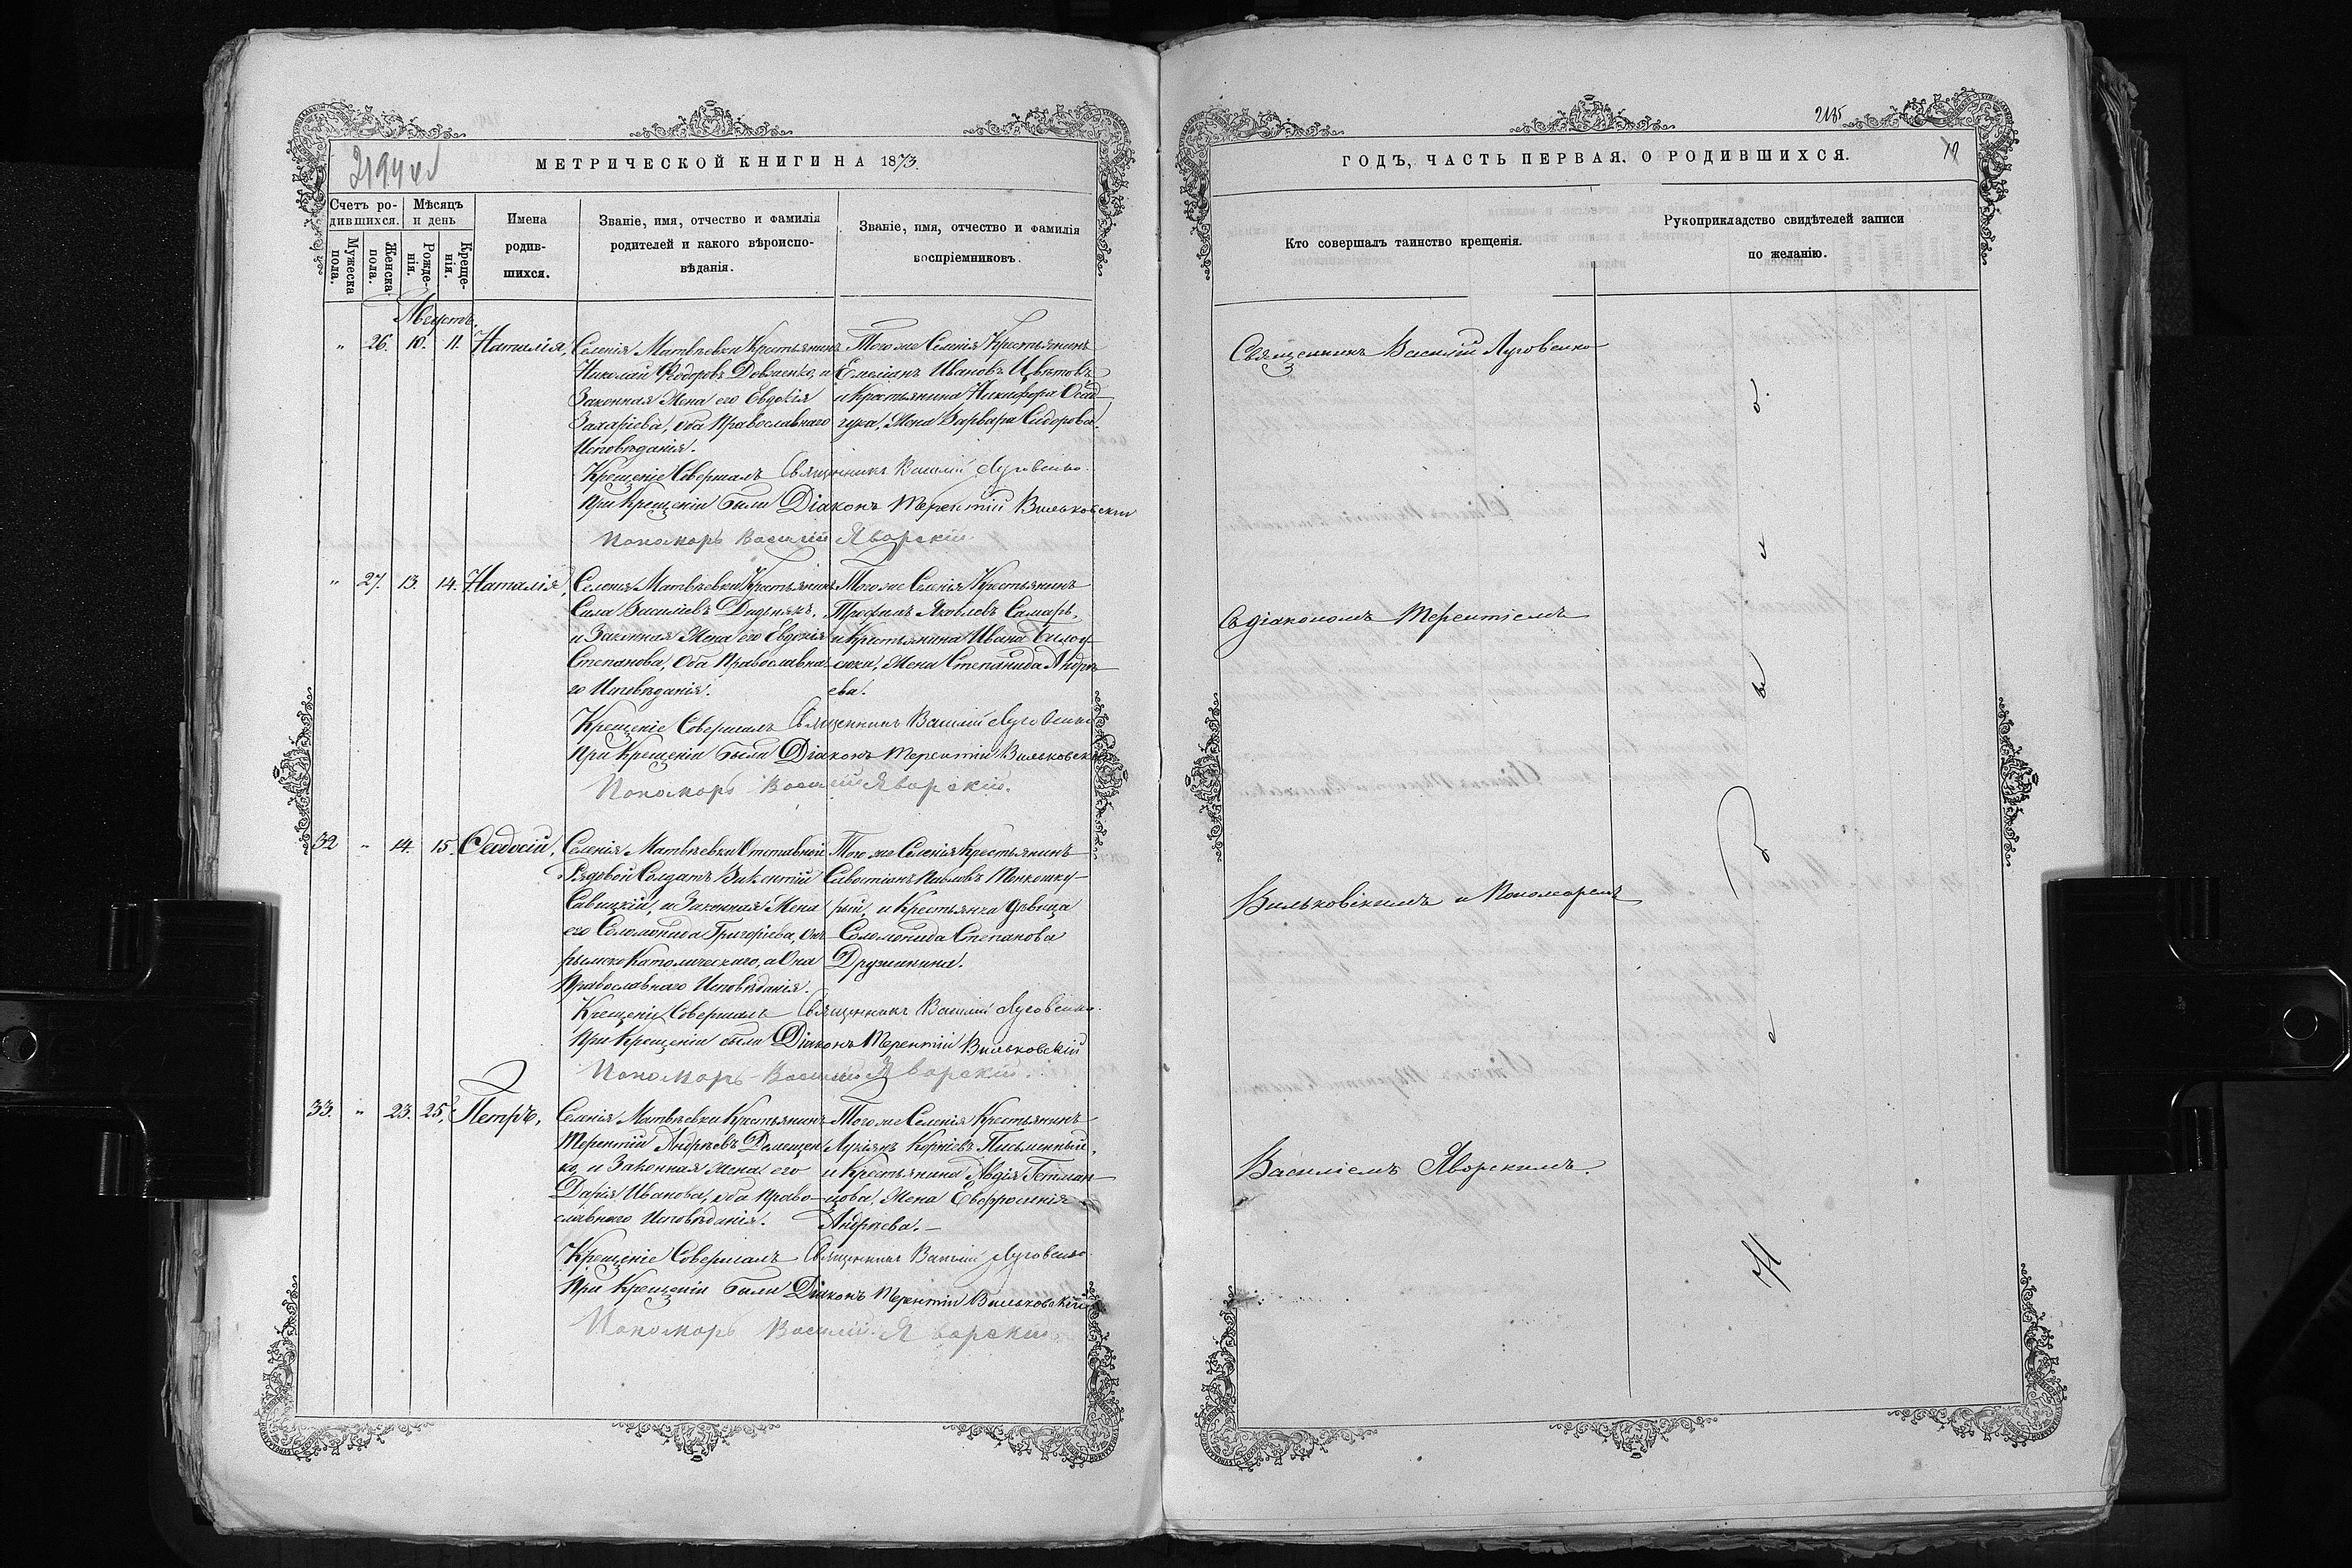 2194 об
МЕТРИЧЕСКОЙ КНИГИ НА 1873.
Счетъ родившихся.
Мѣсяцъ и день
Имена родившихся.
Званіе, имя, отчество и фамилія родителей и какого вѣроисповѣданія.
Званіе, имя, отчество и фамилія воспріемниковъ.
Мужеска пола.
Женска. пола.
Рожденія.
Крещенія.
Августъ.
" 26. 10. 11. Наталія,
Селенія Матвѣевки Крестьянинъ
Николай Ѳедоровъ Довженко, и
Законная Жена его Евдокія
Захаріева, оба Православнаго
Исповѣданія.
Того же Селенія Крестьянинъ
Емеліанъ Ивановъ Цвѣтовъ
и Крестьянина Никифора Осад
чука, Жена Варвара Сидорова.
Крещеніе Совершалъ Священникъ Василій Луговенко.
При Крещеніи были Діаконъ Терентій Вильковскій
Пономарь Василій Яворскій.
" 27. 13. 14. Наталія,
Селенія Матвѣевки Крестьянинъ
Сила Василіевъ Диденякъ,
и Законная Жена его Евдокія
Степанова, Оба Православна
го Исповѣданія.
Того же Селенія Крестьянинъ
Трофимъ Яковлевъ Самарь,
и Крестьянина Ивана Било
сюка, Жена Степанида Андре
ева.
Крещеніе Совершалъ Священникъ Василій Луговенко
При Крещеніи были Діаконъ Терентій Вильковскій
Пономарь Василій Яворскій.
32 " 14. 15. Ѳеодосій,
Селенія Матвѣевки Отставной
Рядовой Солдатъ Викентій
Савицкій, и Законная Жена
его Соломонида Григоріева, Онъ
рымско Католическаго, а Она
Православнаго Исповѣданія.
Того же Селенія Крестьянинъ
Савостіонъ Павловъ Тонкошку-
рый, и Крестьянка дѣвица
Соломонида Степанова
Дружинина.
Крещеніе Совершалъ Священникъ Василій Луговенко.
При Крещеніи были Діаконъ Терентій Вильковскій
Пономарь Василій Яворскій.
33. " 23. 25. Петръ,
Селенія Матвѣевки Крестьянинъ
Терентій Андреевъ Демещен
ко, и Законная жена его
Дарія Иванова, оба Право-
славнаго Исповѣданія.
Того же Селенія Крестьянинъ
Лукіянъ Корніевъ Письменный,
и Крестьянина Авдія Гетман-
цова, Жена Евфросинія
Андреева.
Крещеніе Совершалъ Священникъ Василій Луговенко
При Крещеніи были Діаконъ Терентій Вильковскій
Пономарь Василій Яворскій
2185
ГОДЪ, ЧАСТЬ ПЕРВАЯ, О РОДИВШИХСЯ.
Кто совершалъ таинство крещенія.
Рукоприкладство свидѣтелей записи по желанію.
Священникъ Василій Луговенко
Съ діакономъ Терентіемъ
Вильковскимъ и Пономаремъ
Василіемъ Яворскимъ.